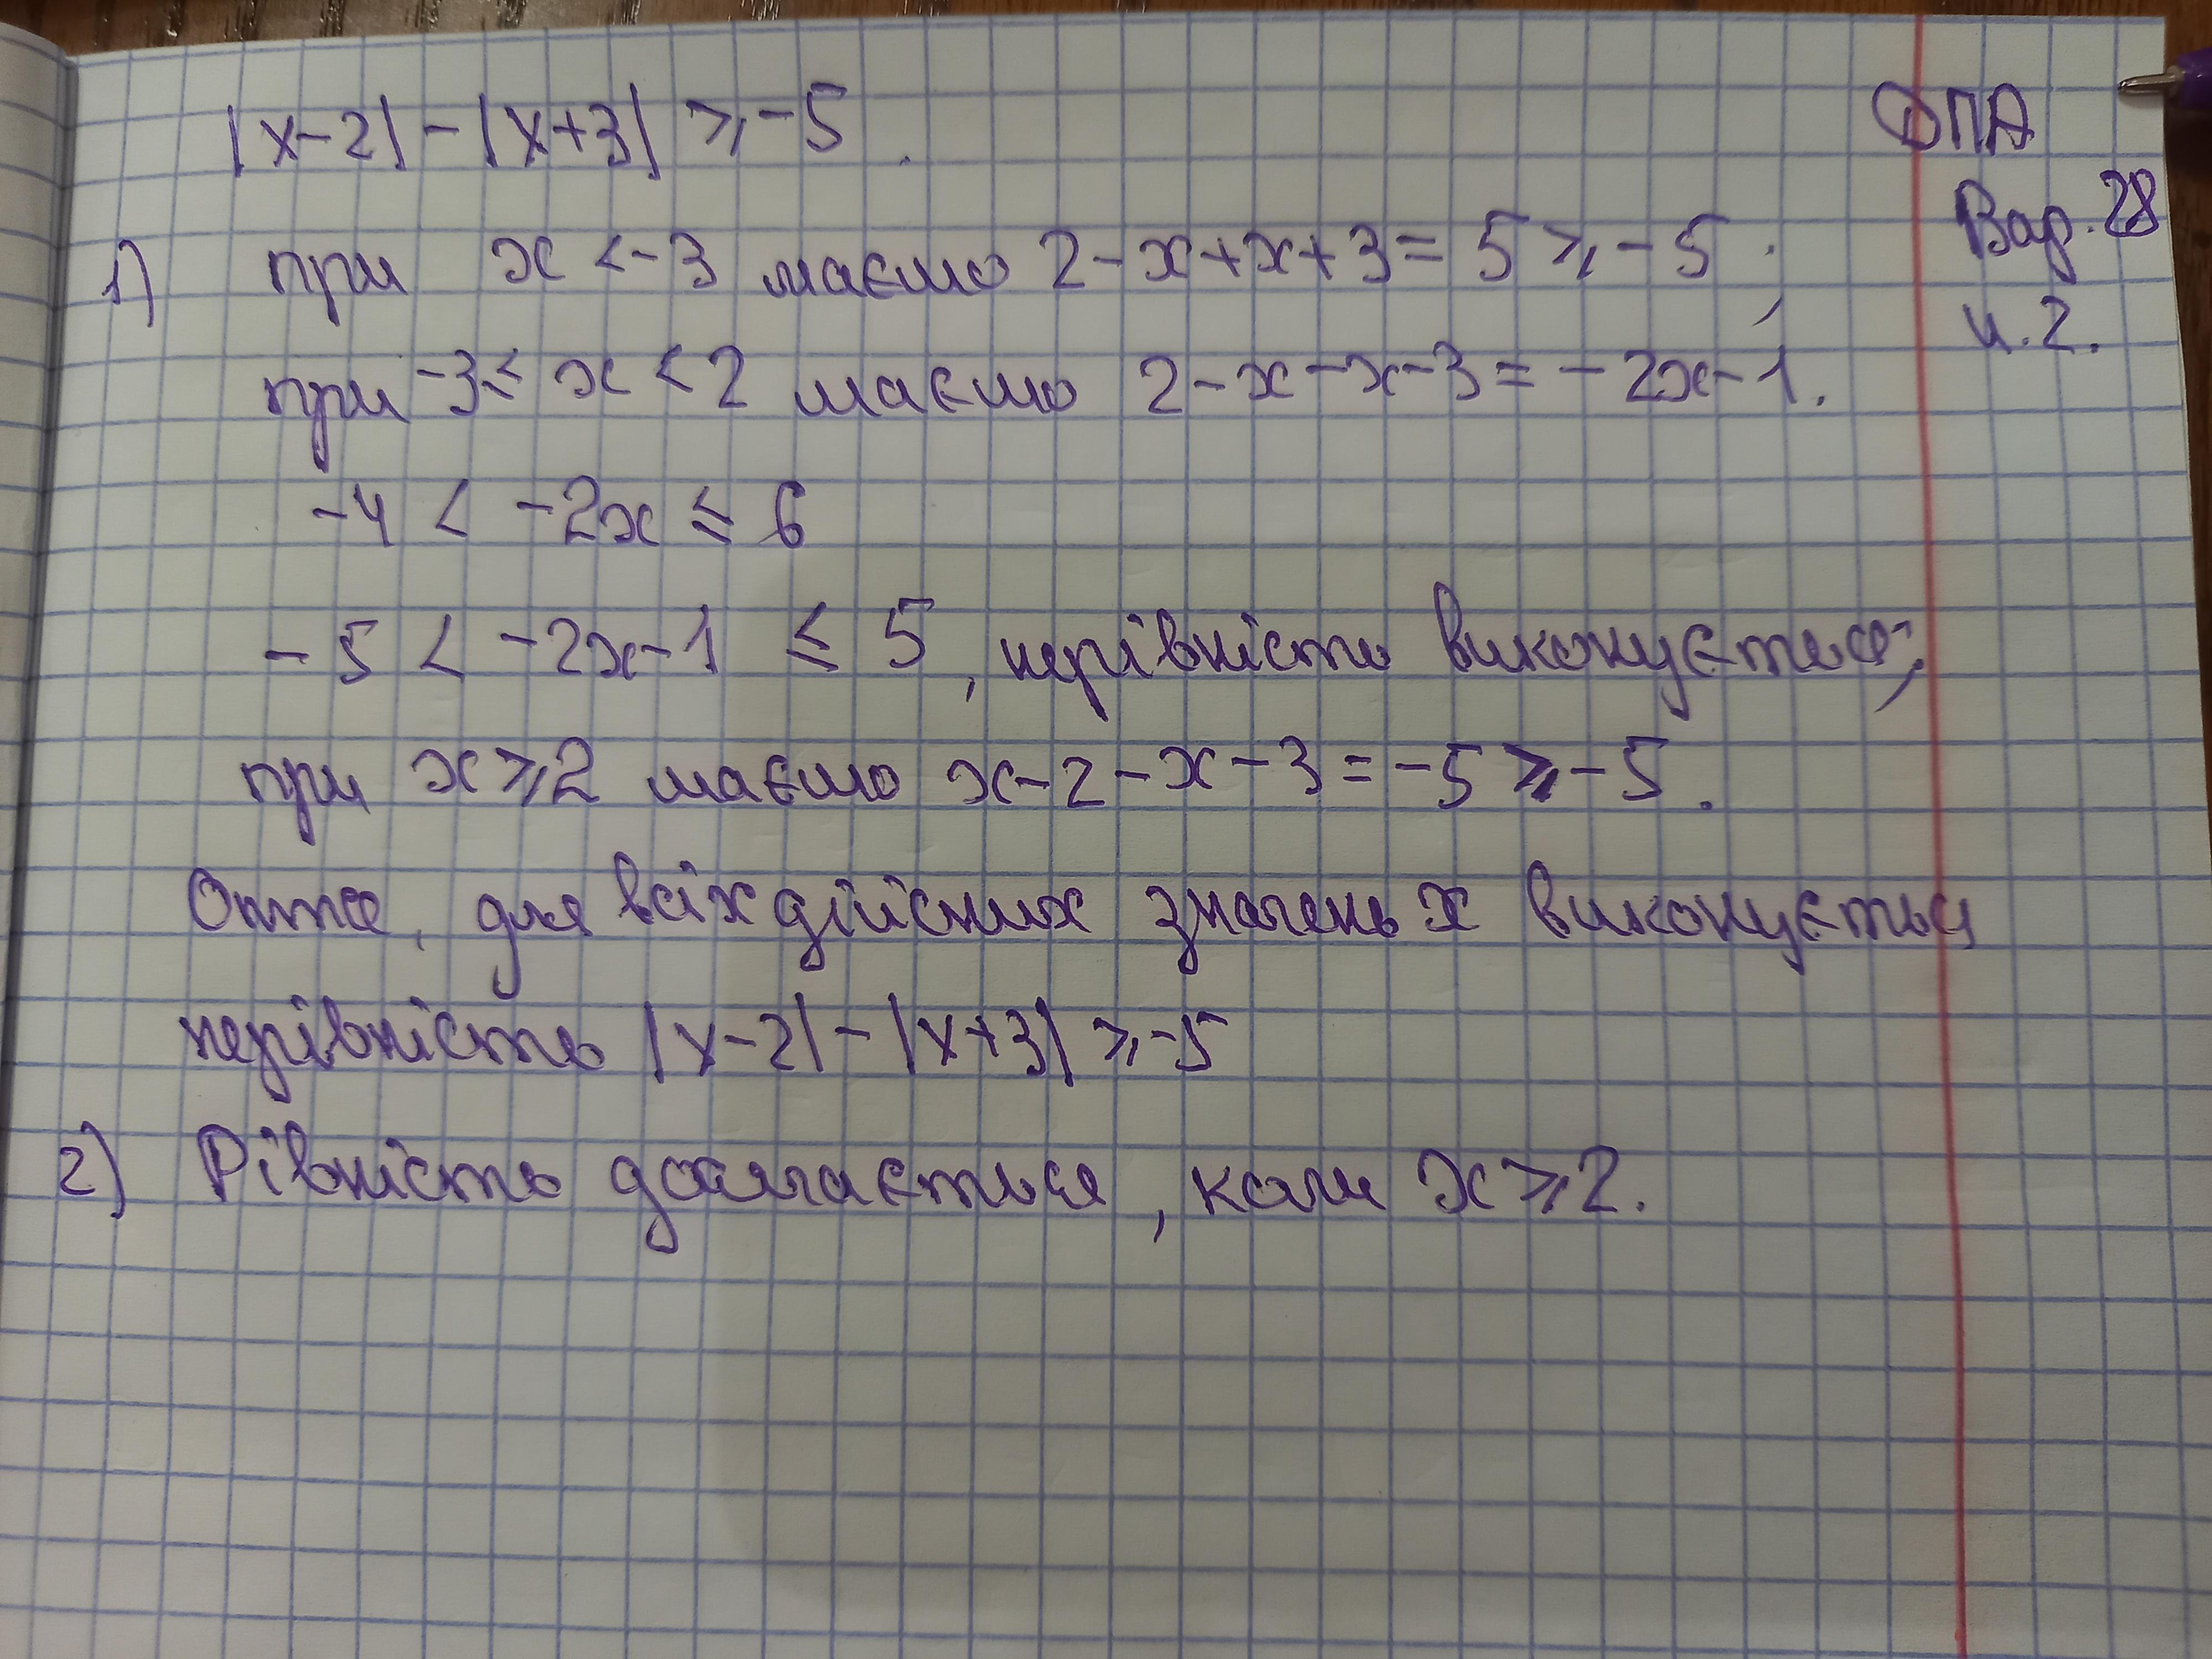 |x-2| - |x+3| ⩾ -5.
ДПА
Вар. 28
ч. 2.
1) при x < -3 маємо 2-x+x+3 = 5 ⩾ -5;
при -3 ≤ x < 2 маємо 2-x-x-3 = -2x-1.
-4 < -2x ≤ 6
-5 < -2x-1 ≤ 5, нерівність виконується;
при x ⩾ 2 маємо x-2-x-3 = -5 ⩾ -5.
Отже, для всіх дійсних значень x виконується
нерівність |x-2| - |x+3| ⩾ -5
2) Рівність досягається, коли x ⩾ 2.